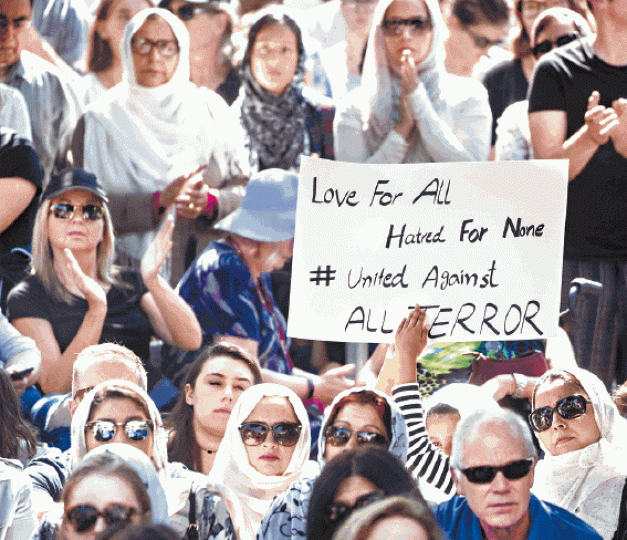 Love For All
Hatred For None
# United Against
ALL TERROR